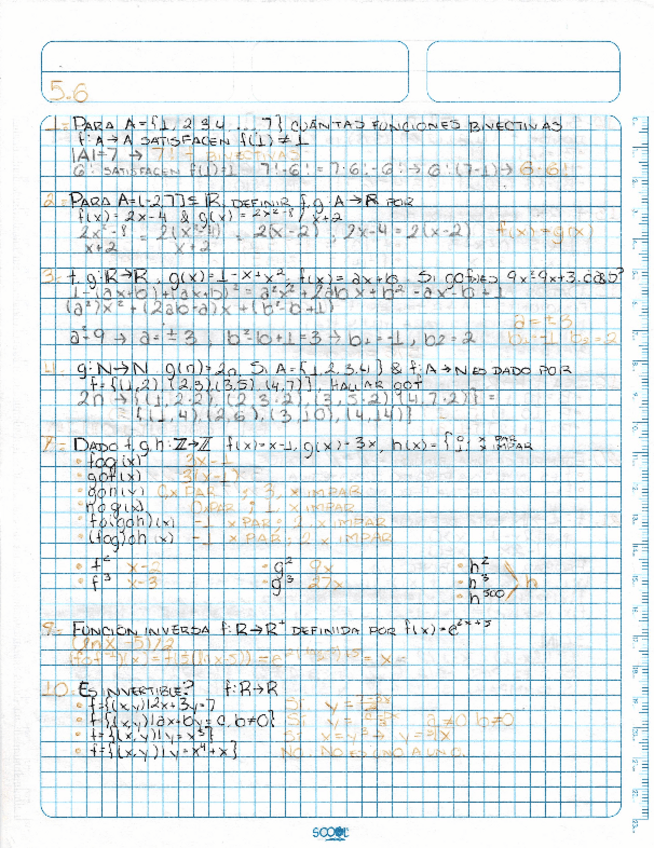 5.6
1= PARA A={1, 2 3 4 ... 7} CUÁNTAS FUNCIONES BIYECTIVAS
f: A→A SATISFACEN f(1) ≠ 1
|A|=7 → 7! = BIYECTIVAS
6! SATISFACEN f(1)=1 7!-6! = 7·6!-6! → 6!(7-1) → 6·6!
2= PARA A=(-2 7] ⊆ R. DEFINIR f, g: A→R POR
f(x) = 2x-4 & g(x) = 2x²-8 / x+2
2x²-8 / x+2 = 2(x²-4) / x+2 = 2(x-2) , 2x-4 = 2(x-2) f(x) = g(x)
3= f, g: R→R, g(x)=1-x+x², f(x)= ax+b. Si gof(x)= 9x²-9x+3. a&b?
1-(ax+b)+(ax+b)² = a²x²+2abx+b²-ax-b+1
(a²)x²+(2ab-a)x+(b²-b+1)
a²=9 → a=±3, b²-b+1=3 → b₁=-1, b₂=2
a=±3
b₁=-1 b₂=2
4= g: N→N g(n)=2n, Si A={1,2,3,4} & f: A→N ES DADO POR
f={(1,2), (2,3), (3,5), (4,7)}, HALLAR gof
2n → {(1, 2·2), (2 3·2), (3, 5·2), (4, 7·2)} =
= {(1,4), (2,6), (3,10), (4,14)}
7= DADO f, g, h: Z→Z f(x)=x-1, g(x)=3x, h(x) = {0; x PAR 1; x IMPAR
• fog(x) 3x-1
• gof(x) 3(x-1)
• goh(x) 0 x PAR; 3, x IMPAR
• hog(x) 0 PAR; 1 x IMPAR
• fo(goh)(x) -1 x PAR; 2 x IMPAR
• (fog)oh (x) -1 x PAR; 2 x IMPAR
• f² x-2 • g² 9x • h²
• f³ x-3 • g³ 27x • h³ h
• h⁵⁰⁰
9= FUNCIÓN INVERSA f: R→R⁺ DEFINIDA POR f(x)=e²ˣ⁺⁵
(lnx-5)/2
10. ES INVERTIBLE? f: R→R
• f={(x,y)|2x+3y=7 Si
• f={(x,y)|ax+by=c, b≠0} Si a≠0 b≠0
• f={(x,y)|y=x³} Si
• f={(x,y)|y=x⁴+x} NO. NO ES UNO A UNO.
SCOOL